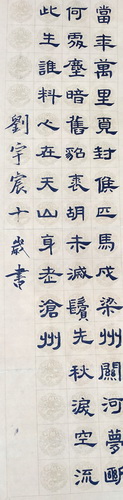 當年萬里覓封侯匹馬戍梁州關河夢斷
何處塵暗舊貂裘胡未滅鬢先秋淚空流
此生誰料心在天山身老滄州
劉宇宸十歲書